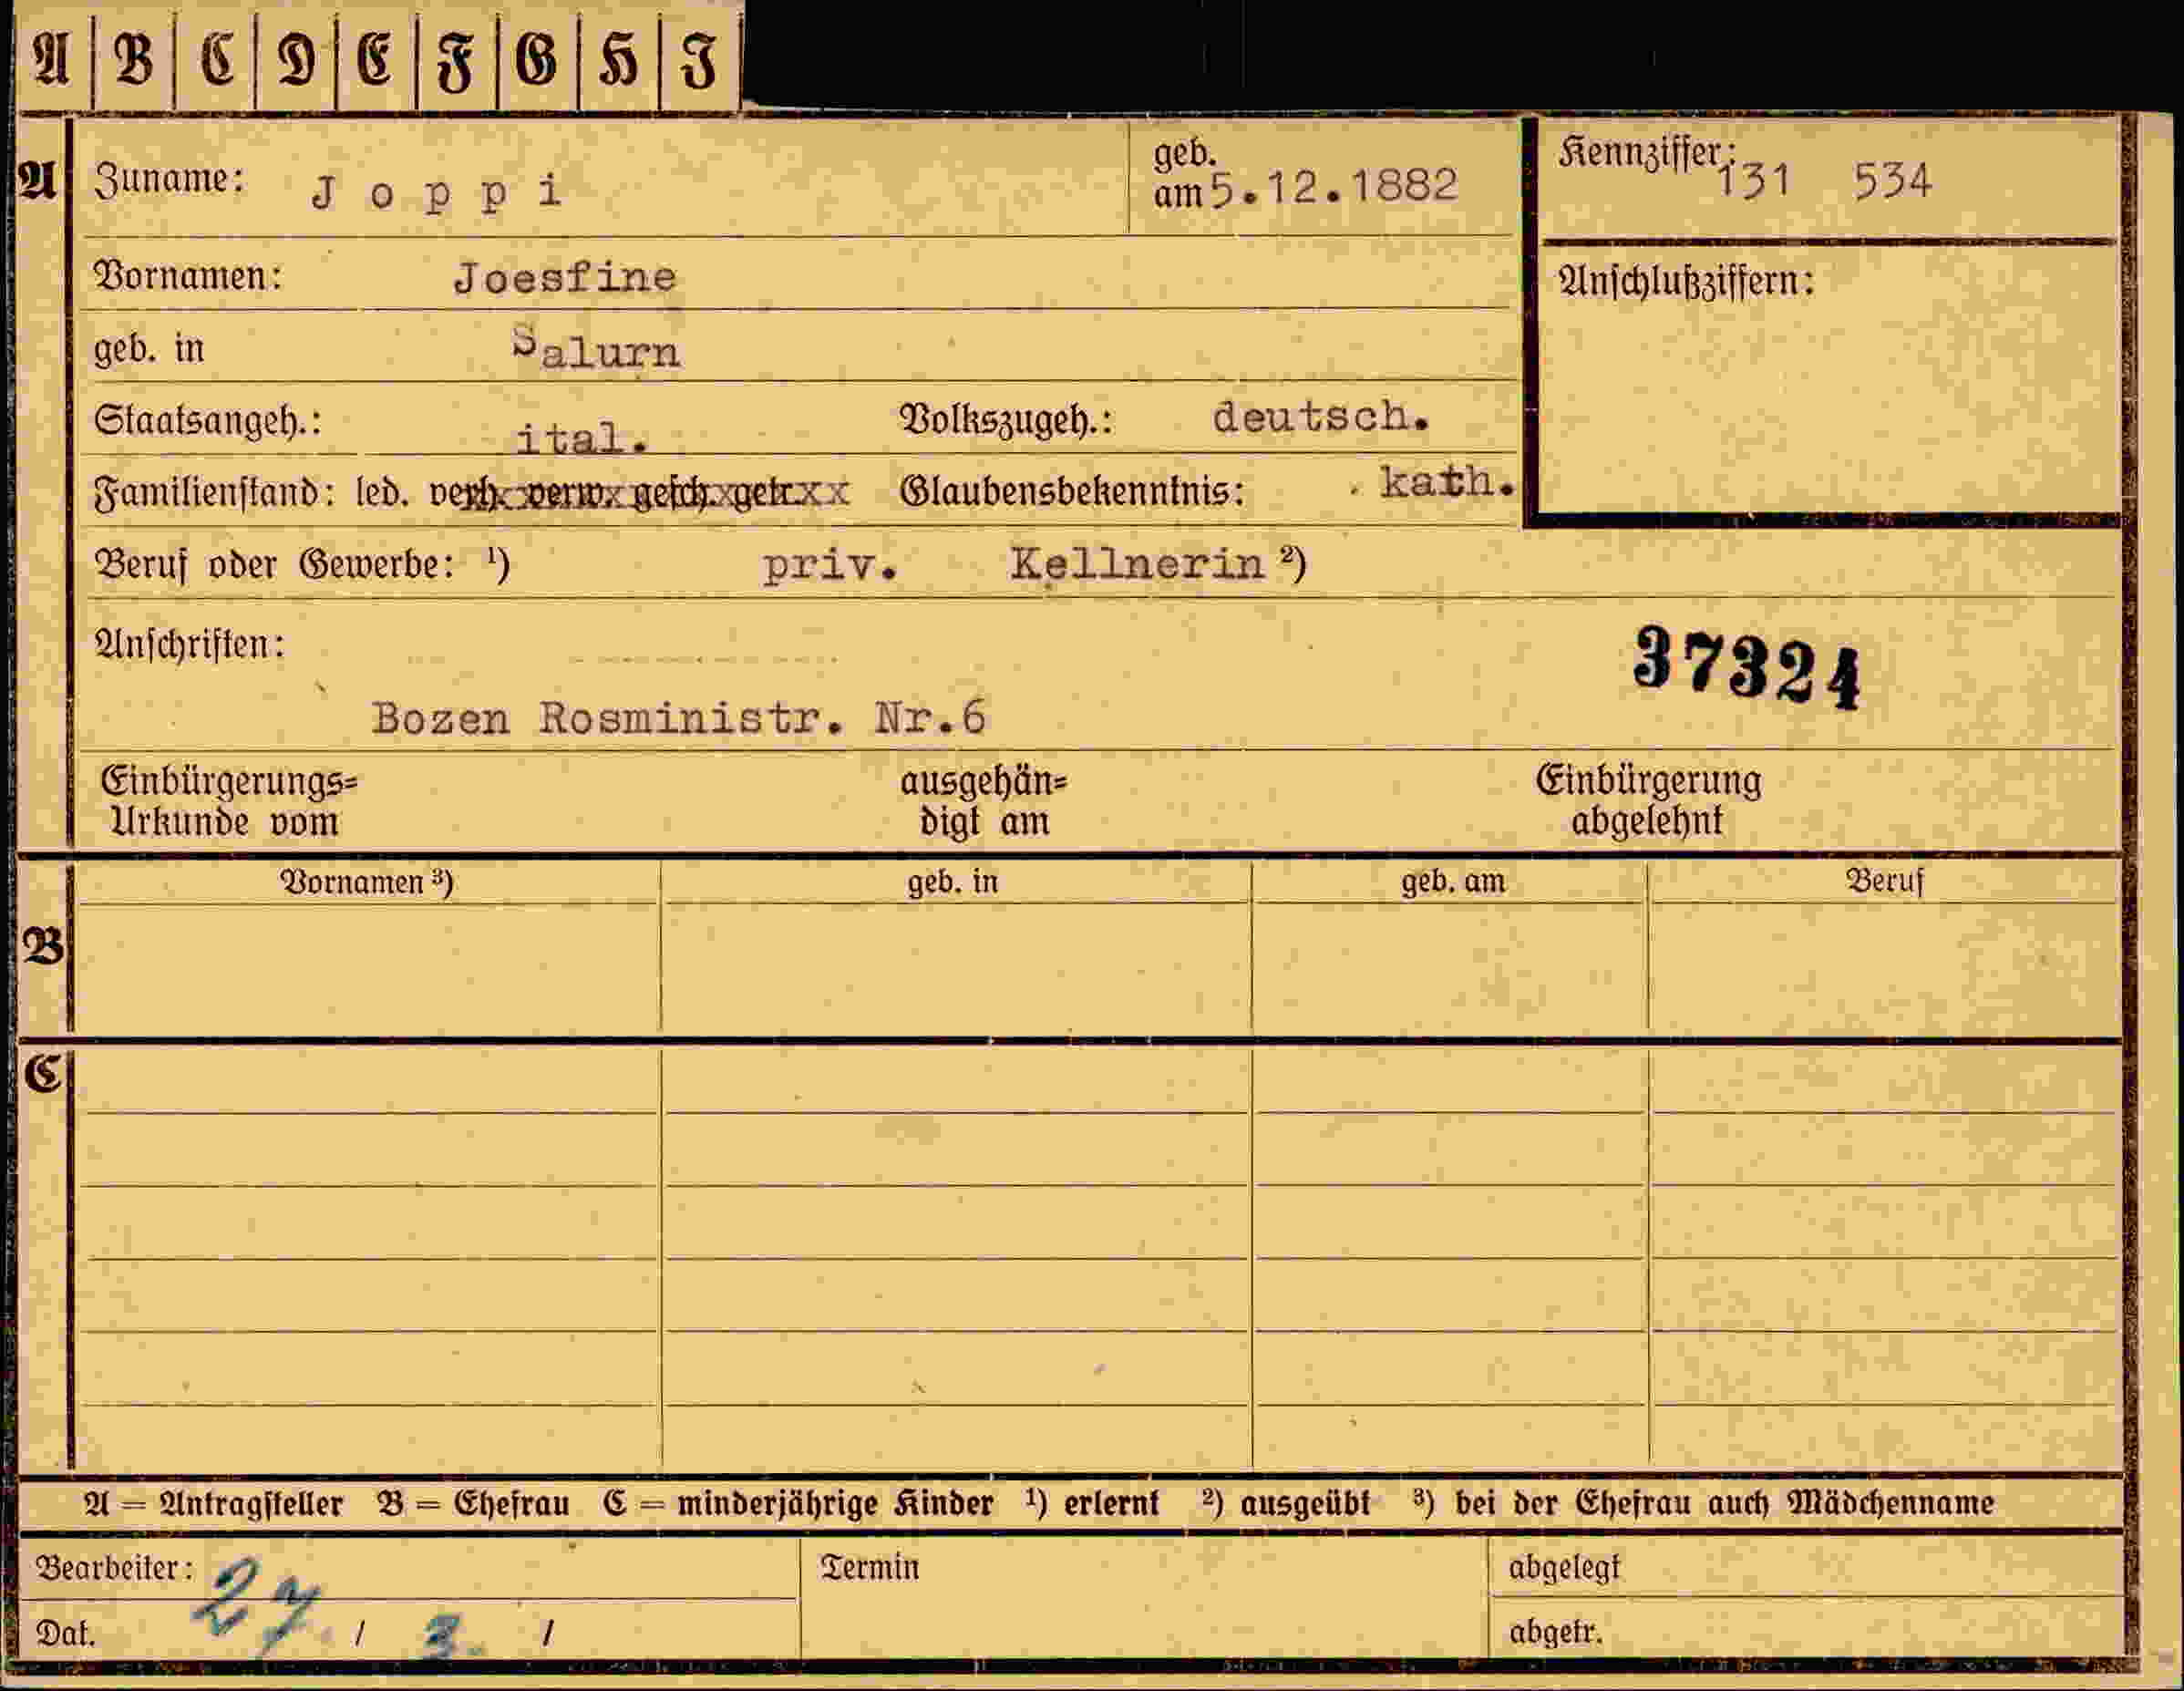 A B C D E F G H I
A Zuname: Joppi geb. am 5.12.1882 Kennziffer: 131 534
Vornamen: Joesfine Anschlußziffern:
geb. in Salurn
Staatsangeh.: ital. Volkszugeh.: deutsch.
Familienstand: led. verh. verw. gesch. getr. Glaubensbekenntnis: kath.
Beruf oder Gewerbe: ¹) priv. Kellnerin ²)
Anschriften: 37324
Bozen Rosministr. Nr.6
Einbürgerungs= ausgehän= Einbürgerung
Urkunde vom digt am abgelehnt
Vornamen ³) geb. in geb. am Beruf
B
C
A = Antragsteller B = Ehefrau C = minderjährige Kinder ¹) erlernt ²) ausgeübt ³) bei der Ehefrau auch Mädchenname
Bearbeiter: Termin abgelegt
Dat. 27. / 3. / abgetr.